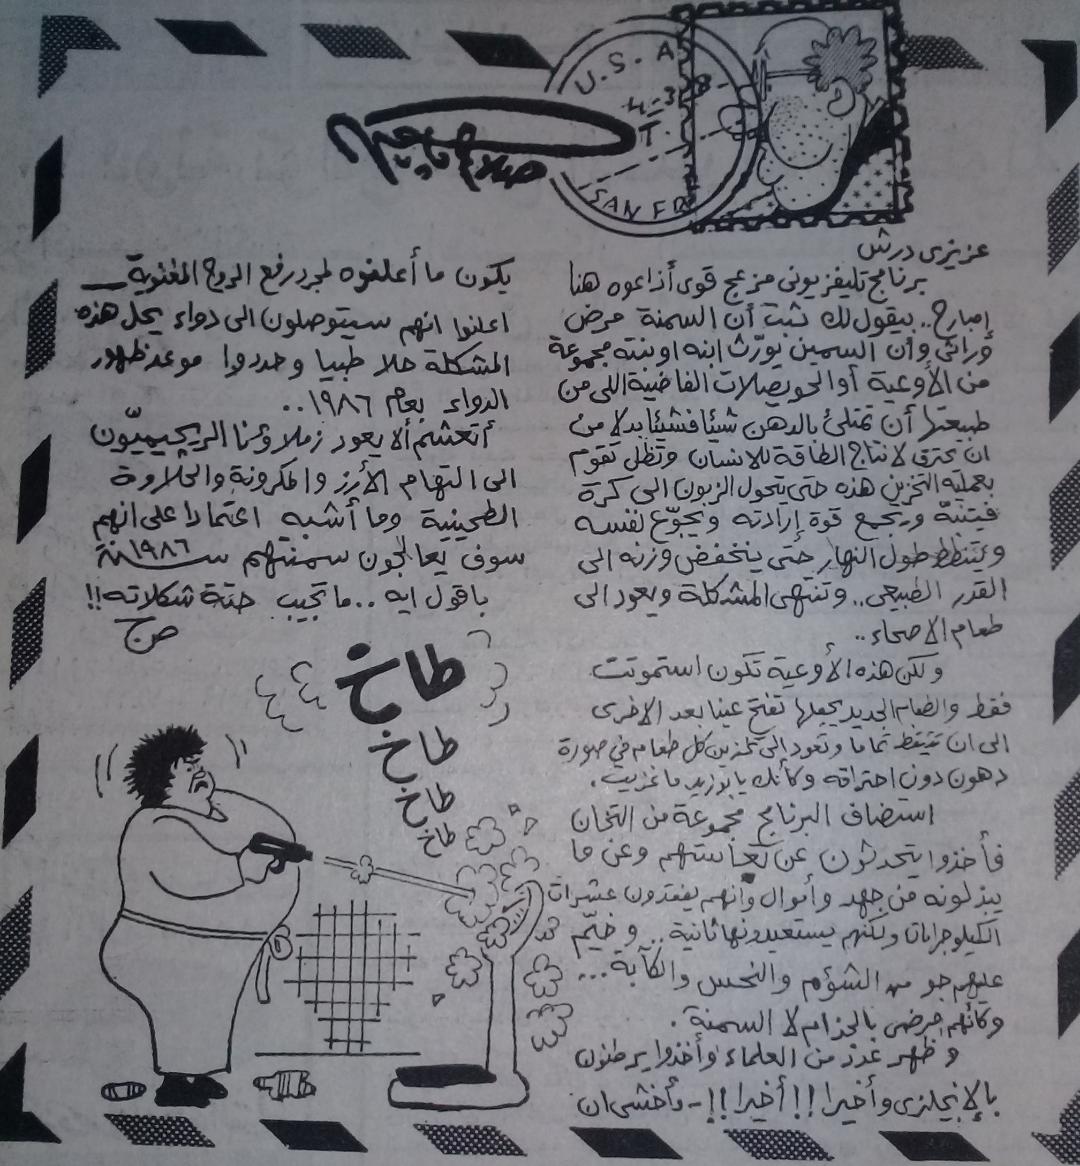 U.S.A
SAN FR
صلاح جاهين
عزيزى درش
برنامج تليفزيونى مزعج قوى أذاعوه هنا
إمبارح.. بيقول لك ثبت أن السمنة مرض
وراثى وأن السمين يورّث ابنه او بنته مجموعة
من الأوعية أو الحويصلات الفاضية اللى من
طبيعتها أن تمتلئ بالدهن شيئا فشيئا بدلا من
ان تحترق لانتاج الطاقة للانسان وتظل تقوم
بعملية التخزين هذه حتى يتحول الزبون الى كرة
فيتنبّه ويجمع قوة إرادته ويجوّع نفسه
ويتنطط طول النهار حتى ينخفض وزنه الى
القدر الطبيعى.. وتنتهى المشكلة ويعود الى
طعام الاصحاء..
ولكن هذه الأوعية تكون استموتت
فقط والطعام الجديد يجعلها تفتح عينا بعد الاخرى
الى ان تتيقظ تماما وتعود الى تخزين كل طعام فى صورة
دهون دون احتراقه وكأنك يا بوزيد ما غزيت.
استضاف البرنامج مجموعة من التخان
فأخذوا يتحدثون عن تعاستهم وعن ما
يبذلونه من جهد وأموال وأنهم يفقدون عشرات
الكيلوجرامات ولكنهم يستعيدونها ثانية.. وخيّم
عليهم جو من الشؤم والنحس والكآبة...
وكأنهم مرضى بالجذام لا السمنة.
وظهر عدد من العلماء وأخذوا يرطنون
بالإنجليزى وأخيرا!! أخيرا!! - وأخشى ان
يكون ما أعلنوه لمجرد رفع الروح المعنوية ــ
اعلنوا انهم سيتوصلون الى دواء يحل هذه
المشكلة حلا طبيا وحددوا موعد ظهور
الدواء بعام ١٩٨٦..
أتعشم ألا يعود زملاؤنا الريچيميّون
الى التهام الأرز والمكرونة والحلاوة
الطحينية وما أشبه اعتمادا على انهم
سوف يعالجون سمنتهم سنة ١٩٨٦
باقول ايه.. ما تجيب حتة شكلاته!!
ص ج
طاخ
طاخ
طاخ
طاخ